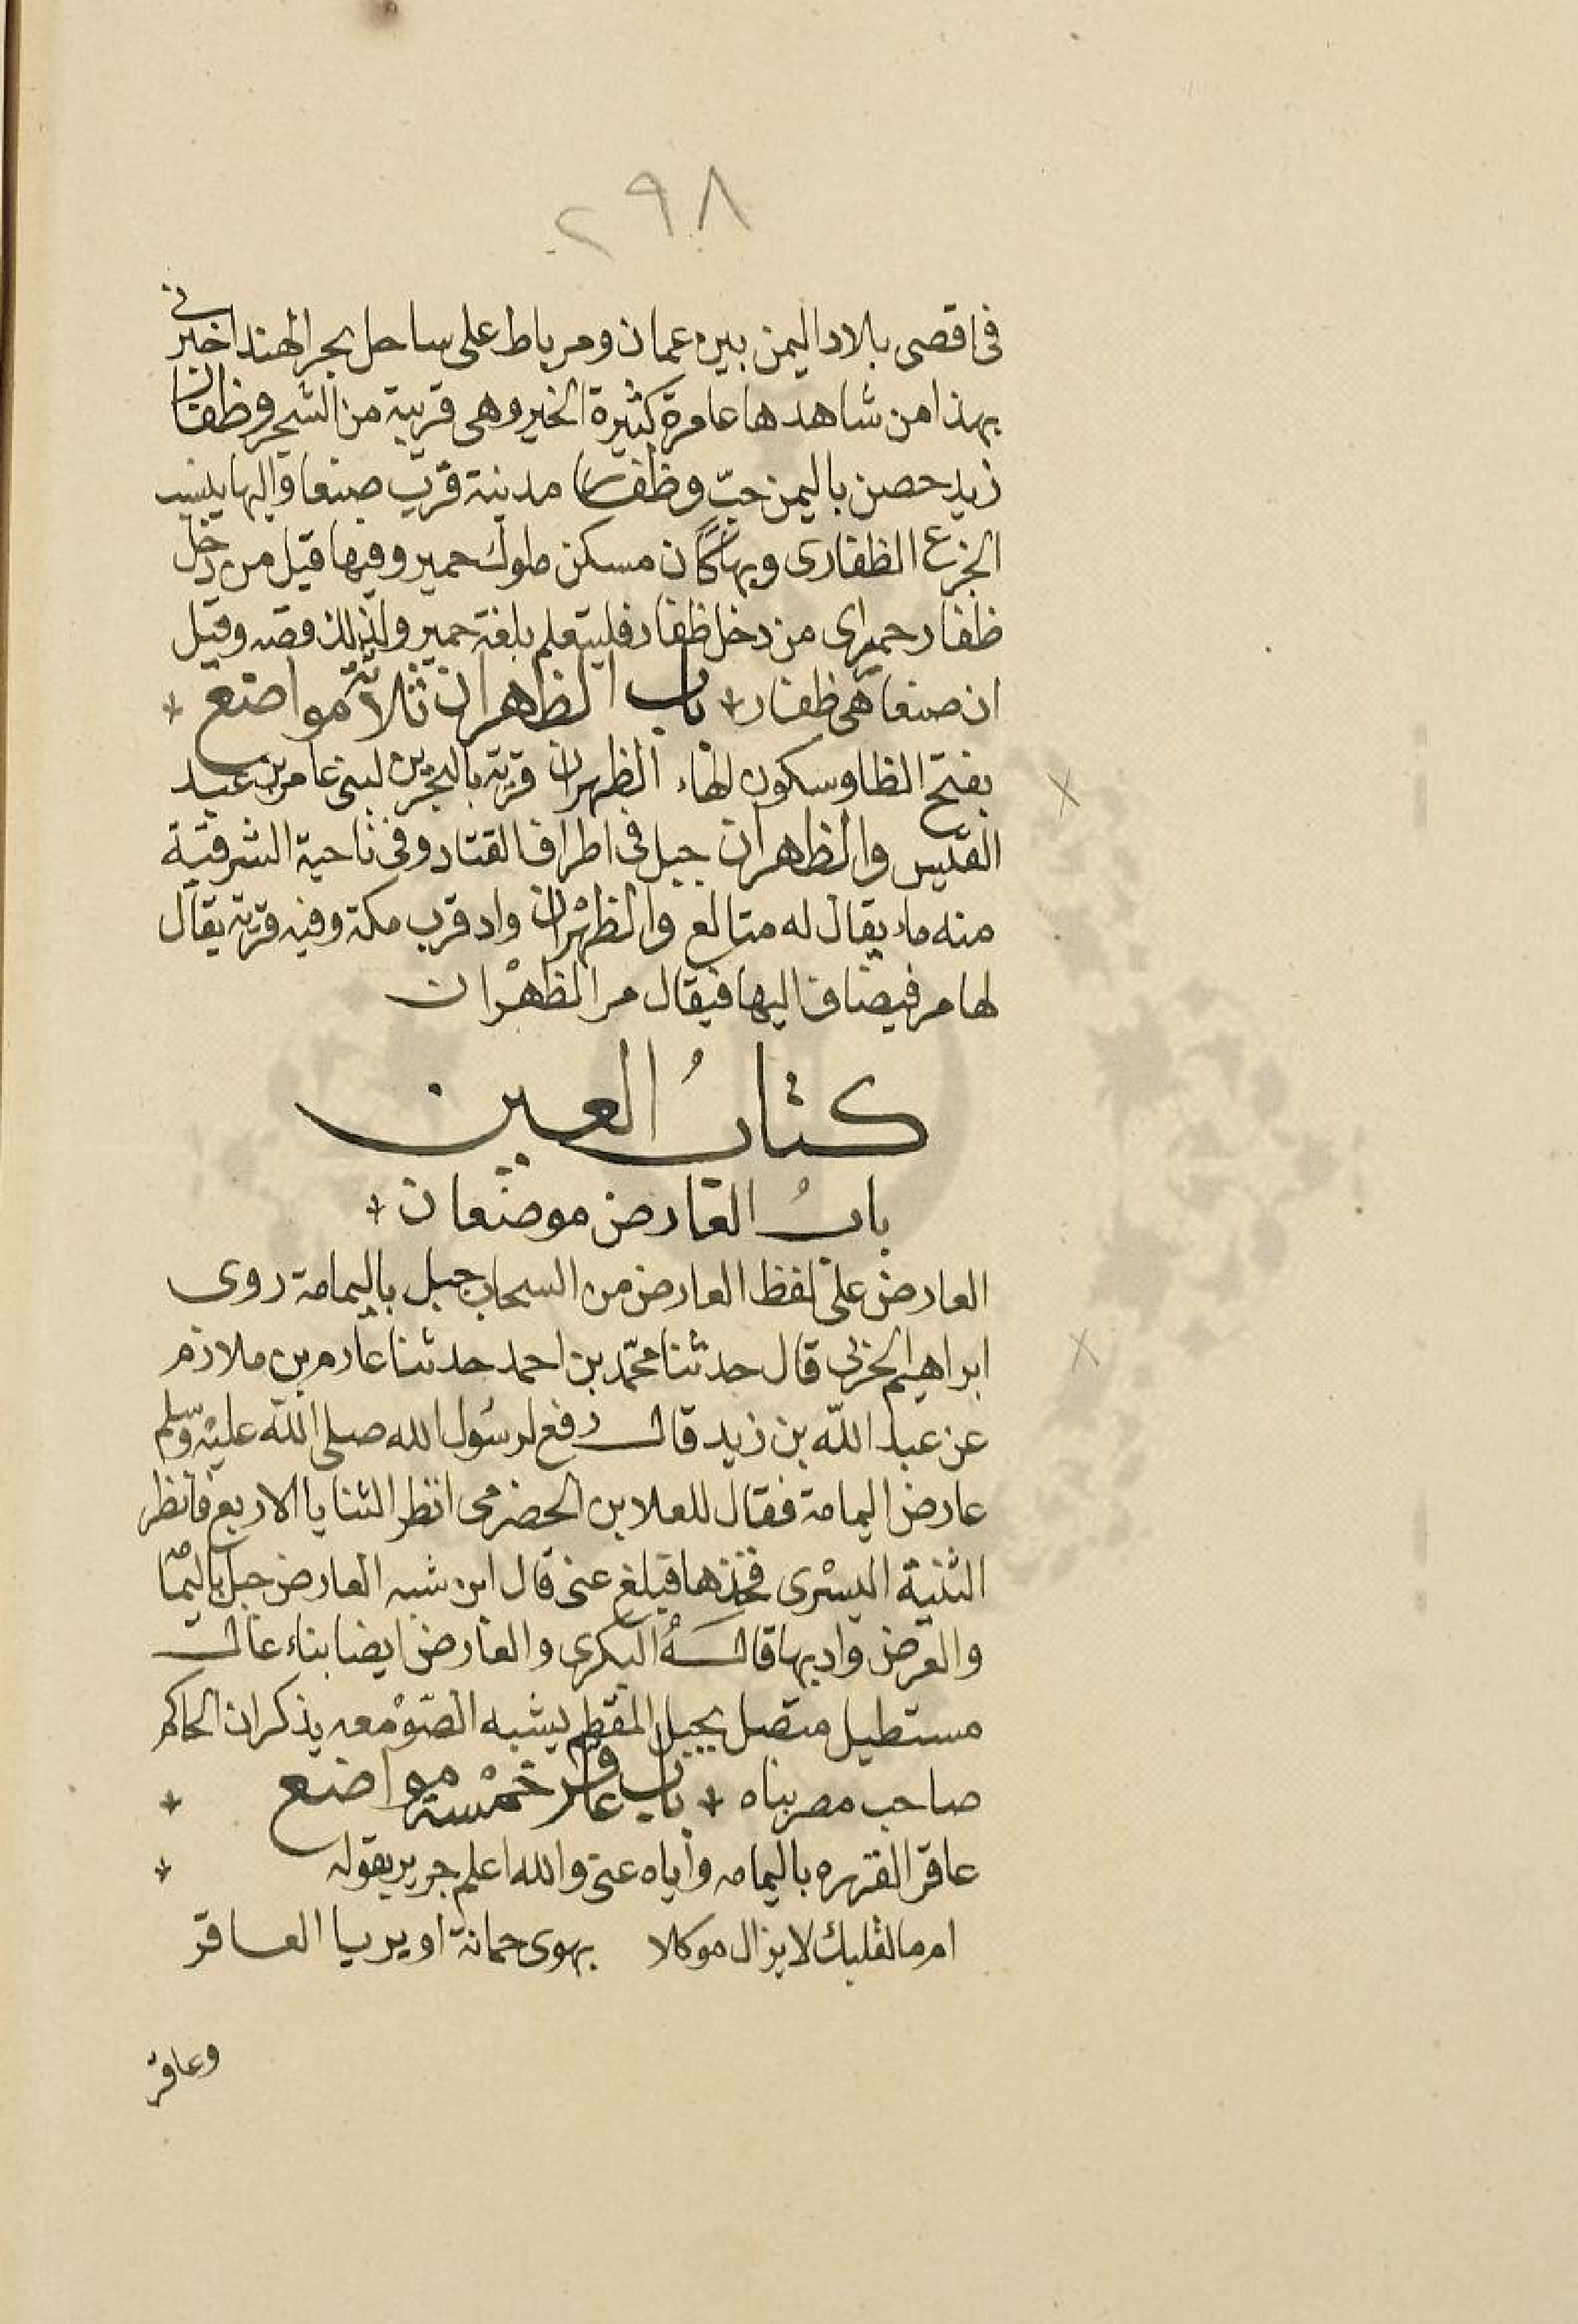 ٢٩٨
فى اقصى بلاد اليمن بين عمان ومرباط على ساحل بحر الهند اخبرنى
بهذا من شاهدها عامرة كثيرة الخير وهى قريبة من الشحر وظفار
زيد حصن باليمن حبّ وظفار مدينة قرب صنعا واليها ينسب
الجزع الظفارى وبها كان مسكن ملوك حمير وفيها قيل من دخل
ظفار حمر اى من دخل ظفار فليتعلم بلغة حمير ولذلك قصه وقيل
ان صنعا هى ظفار باب الظهران ثلاثة مواضع
بفتح الظا وسكون الهاء الظهران قرية بالبحرين لبنى عامر بن عبد
القيس والظهران جبل فى اطراف القتاد وفى ناحية الشرقية
منه ماء يقال له متالع والظهران واد قرب مكة وفيه قرية يقال
لها مر فيضاف اليها فيقال مر الظهران
كتاب العين
باب العارض موضعان
العارض على لفظ العارض من السحاب جبل باليمامة روى
ابراهيم الحربى قال حدثنا محمّد بن احمد حدثنا عارم بن ملازم
عن عبد الله بن زيد قال رفع لرسول الله صلى الله عليه وسلم
عارض اليمامة فقال للعلا بن الحضرمى انظر الثنايا الاربع فانظر
الثنية اليسرى فخذها فبلغ عنى قال ابن شبه العارض جبل باليمامه
والعرض واديها قاله البكرى والعارض ايضا بناء عال
مستطيل متصل بجبل المقطم يشبه الصومعه يذكر ان الحاكم
صاحب مصر بناه باب عاقر خمسة مواضع
عاقر القهره باليمامه واياه عنى والله اعلم جرير بقوله
ام ما لقلبك لا يزال موكلا بهوى حمانة او بريا العاقر
وعاقر